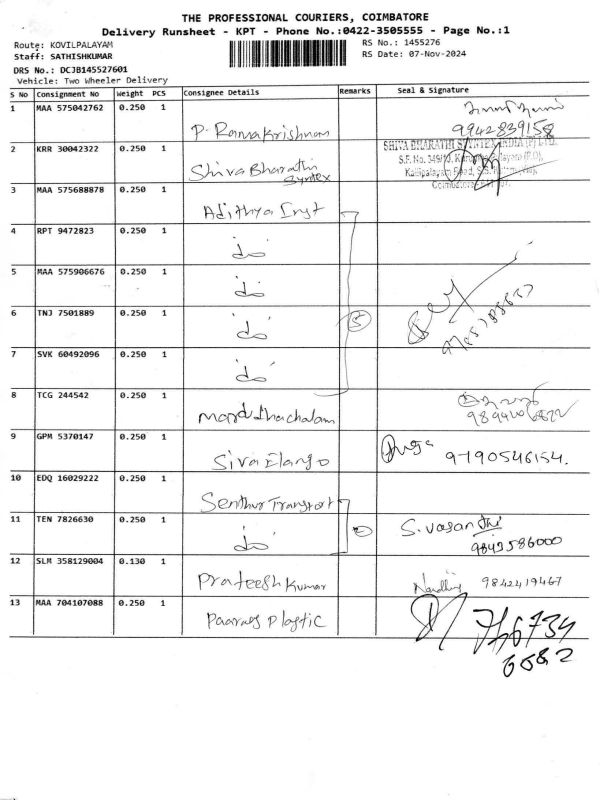 THE PROFESSIONAL COURIERS, COIMBATORE
Delivery Runsheet - KPT - Phone No.:0422-3505555 - Page No.:1
Route: KOVILPALAYAM
RS No.: 1455276
Staff: SATHISHKUMAR
RS Date: 07-Nov-2024
DRS No.: DCJB145527601
Vehicle: Two Wheeler Delivery
S No Consignment No Weight PCS Consignee Details Remarks Seal & Signature
1 MAA 575042762 0.250 1 P. Ramakrishnan
9942839158
2 KRR 30042322 0.250 1 Shiva Bharathi Syntex
SHIVA BHARATHI SYNTEX INDIA (P) LTD.
S.F. No. 349/10,
Coimbatore
3 MAA 575688878 0.250 1 Adithya Inst
4 RPT 9472823 0.250 1 do
5 MAA 575906676 0.250 1 do
6 TNJ 7501889 0.250 1 do 5
7 SVK 60492096 0.250 1 do
8 TCG 244542 0.250 1
9 GPM 5370147 0.250 1 Siva Elango 9790546154.
10 EDQ 16029222 0.250 1 Senthur Transport
11 TEN 7826630 0.250 1 do 2 S. Vasanthi
12 SLM 358129004 0.130 1 Prateesh Kumar 9842419467
13 MAA 704107088 0.250 1 Plastic